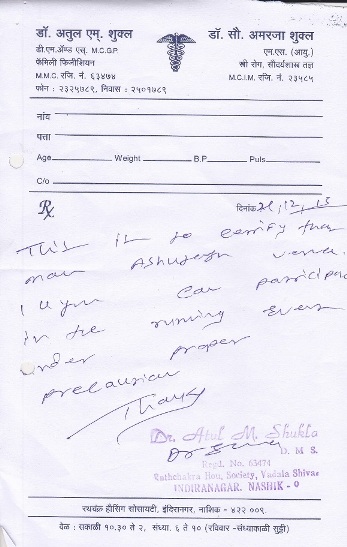 डॉ. अतुल एम्. शुक्ल
डी.एम.ॲण्ड एस्. M.C.G.P.
फॅमिली फिजीशियन
M.M.C. रजि. नं. ६३४७४
फोन : २३२५७८९, निवास : २५०१७८९
डॉ. सौ. अमरजा शुक्ल
एम.एस. (आयु.)
स्त्री रोग, सौंदर्यशास्त्र तज्ञ
M.C.I.M. रजि. नं. २३५८५
नांव
पत्ता
Age Weight B.P. Puls
C/o
Rx दिनांक 21/12/15
This is to certify that
Ashutosh
can participa
in the running even
under proper
precaution
Thanks
Dr. Atul M. Shukla
D. M. S.
Regd. No. 63474
Rathchakra Hou, Society, Vadala Shivar
INDIRANAGAR, NASHIK - 9
रथचक्र हौसिंग सोसायटी, इंदिरानगर, नाशिक - ४२२ ००९.
वेळ : सकाळी १०.३० ते २, संध्या. ६ ते १० (रविवार -संध्याकाळी सुट्टी)